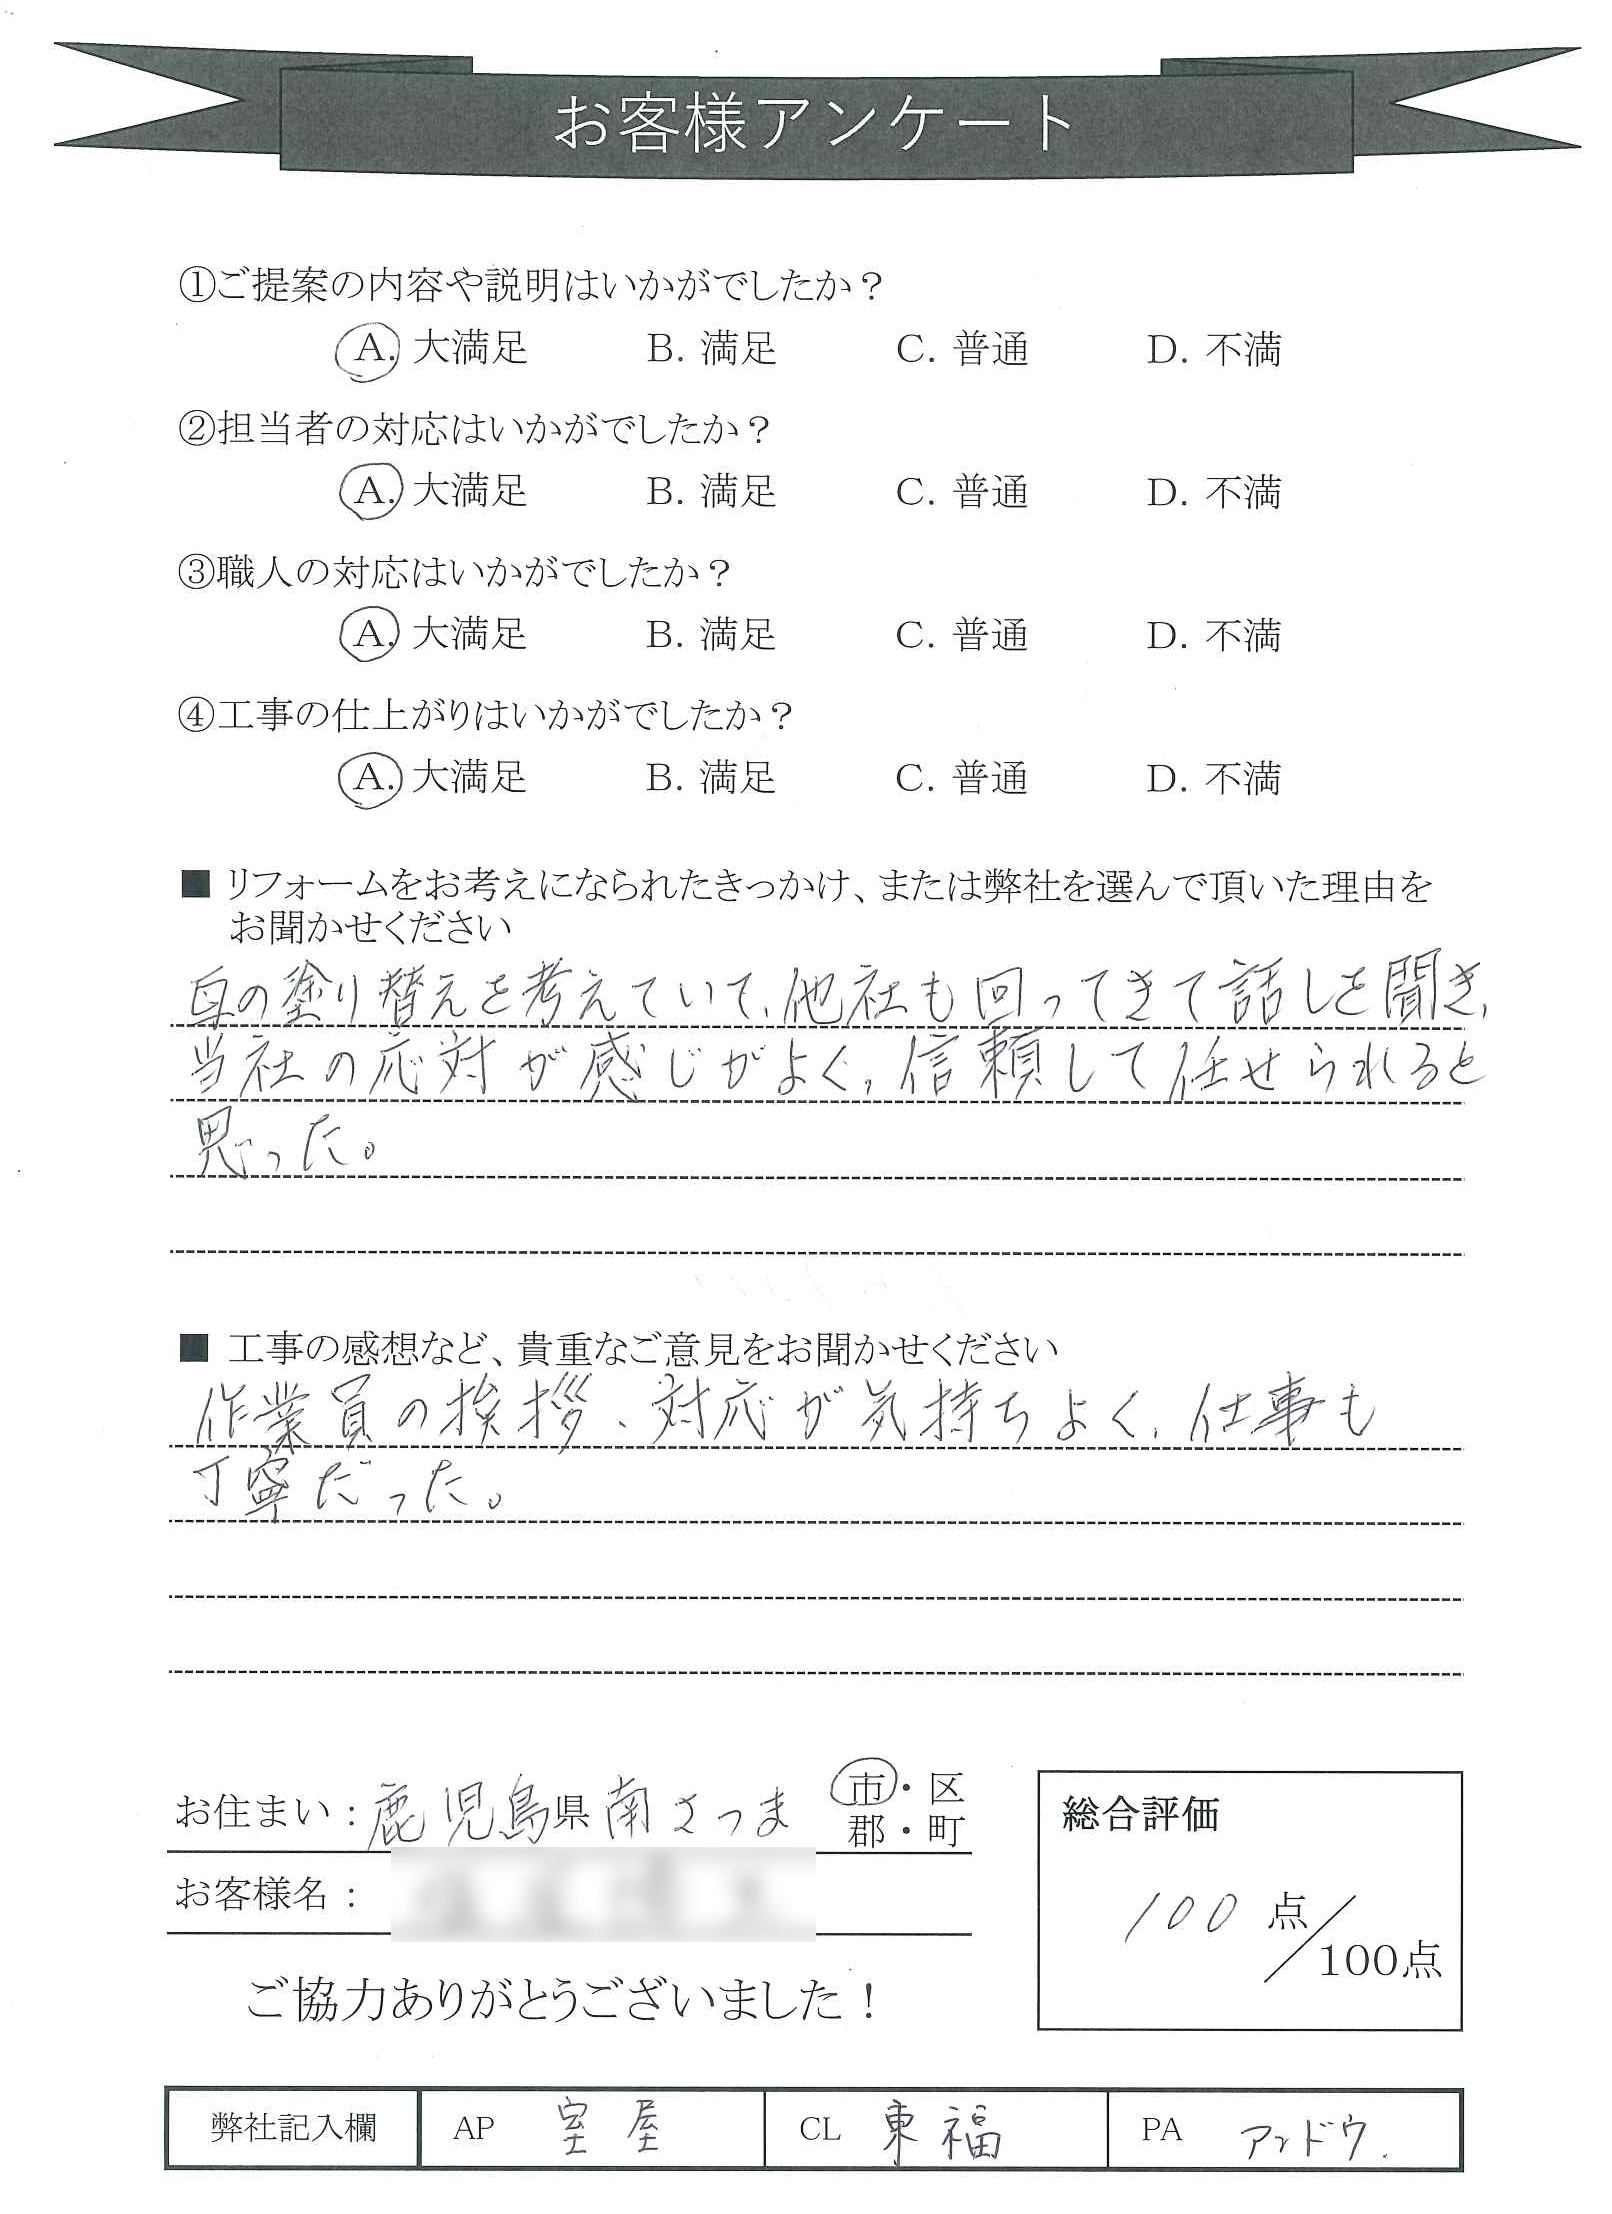 お客様アンケート
①ご提案の内容や説明はいかがでしたか？
A. 大満足 B. 満足 C. 普通 D. 不満
②担当者の対応はいかがでしたか？
A. 大満足 B. 満足 C. 普通 D. 不満
③職人の対応はいかがでしたか？
A. 大満足 B. 満足 C. 普通 D. 不満
④工事の仕上がりはいかがでしたか？
A. 大満足 B. 満足 C. 普通 D. 不満
■ リフォームをお考えになられたきっかけ、または弊社を選んで頂いた理由を
お聞かせください
の塗り替えを考えていて、他社も回ってきて話しを聞き、
当社の応対が感じがよく、信頼して任せられると
思った。
■ 工事の感想など、貴重なご意見をお聞かせください
作業員の挨拶、対応が気持ちよく、仕事も
丁寧だった。
お住まい：鹿児島県南さつま 市・区
郡・町
お客様名：
総合評価
100点／100点
ご協力ありがとうございました！
弊社記入欄 AP 室屋 CL 東福 PA アンドウ.